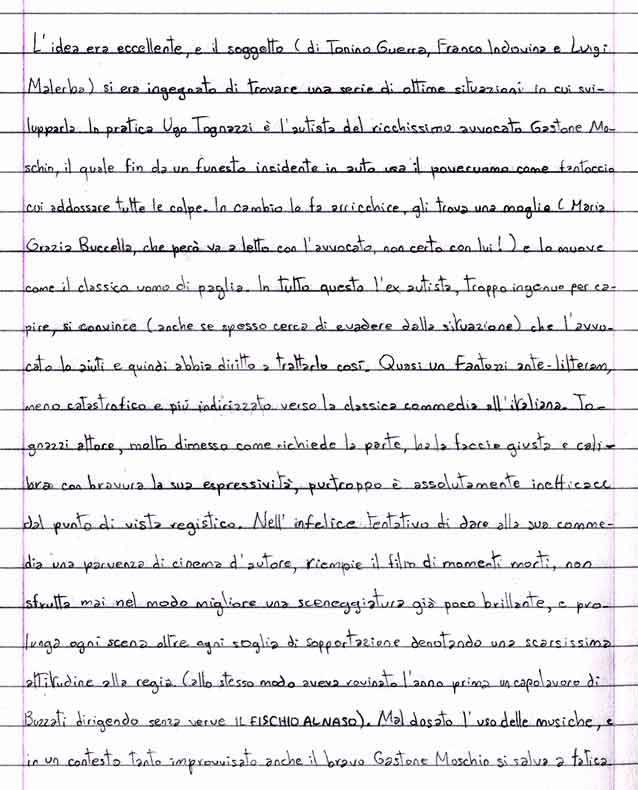 L'idea era eccellente, e il soggetto (di Tonino Guerra, Franco Indovina e Luigi
Malerba) si era ingegnato di trovare una serie di ottime situazioni in cui svi-
lupparla. In pratica Ugo Tognazzi è l'autista del ricchissimo avvocato Gastone Mo-
schin, il quale fin da un funesto incidente in auto usa il poveruomo come fantoccio
cui addossare tutte le colpe. In cambio lo fa arricchire, gli trova una moglie (Maria
Grazia Buccella, che però va a letto con l'avvocato, non certo con lui!) e lo muove
come il classico uomo di paglia. In tutto questo l'ex autista, troppo ingenuo per ca-
pire, si convince (anche se spesso cerca di evadere dalla situazione) che l'avvo-
cato lo aiuti e quindi abbia diritto a trattarlo così. Quasi un Fantozzi ante-litteram,
meno catastrofico e più indirizzato verso la classica commedia all'italiana. To-
gnazzi attore, molto dimesso come richiede la parte, ha la faccia giusta e cali-
bra con bravura la sua espressività, purtroppo è assolutamente inefficace
dal punto di vista registico. Nell'infelice tentativo di dare alla sua comme-
dia una parvenza di cinema d'autore, riempie il film di momenti morti, non
sfrutta mai nel modo migliore una sceneggiatura già poco brillante, e pro-
lunga ogni scena oltre ogni soglia di sopportazione denotando una scarsissima
attitudine alla regia. (allo stesso modo aveva rovinato l'anno prima un capolavoro di
Buzzati dirigendo senza verve IL FISCHIO AL NASO). Mal dosato l'uso delle musiche, e
in un contesto tanto improvvisato anche il bravo Gastone Moschin si salva a fatica